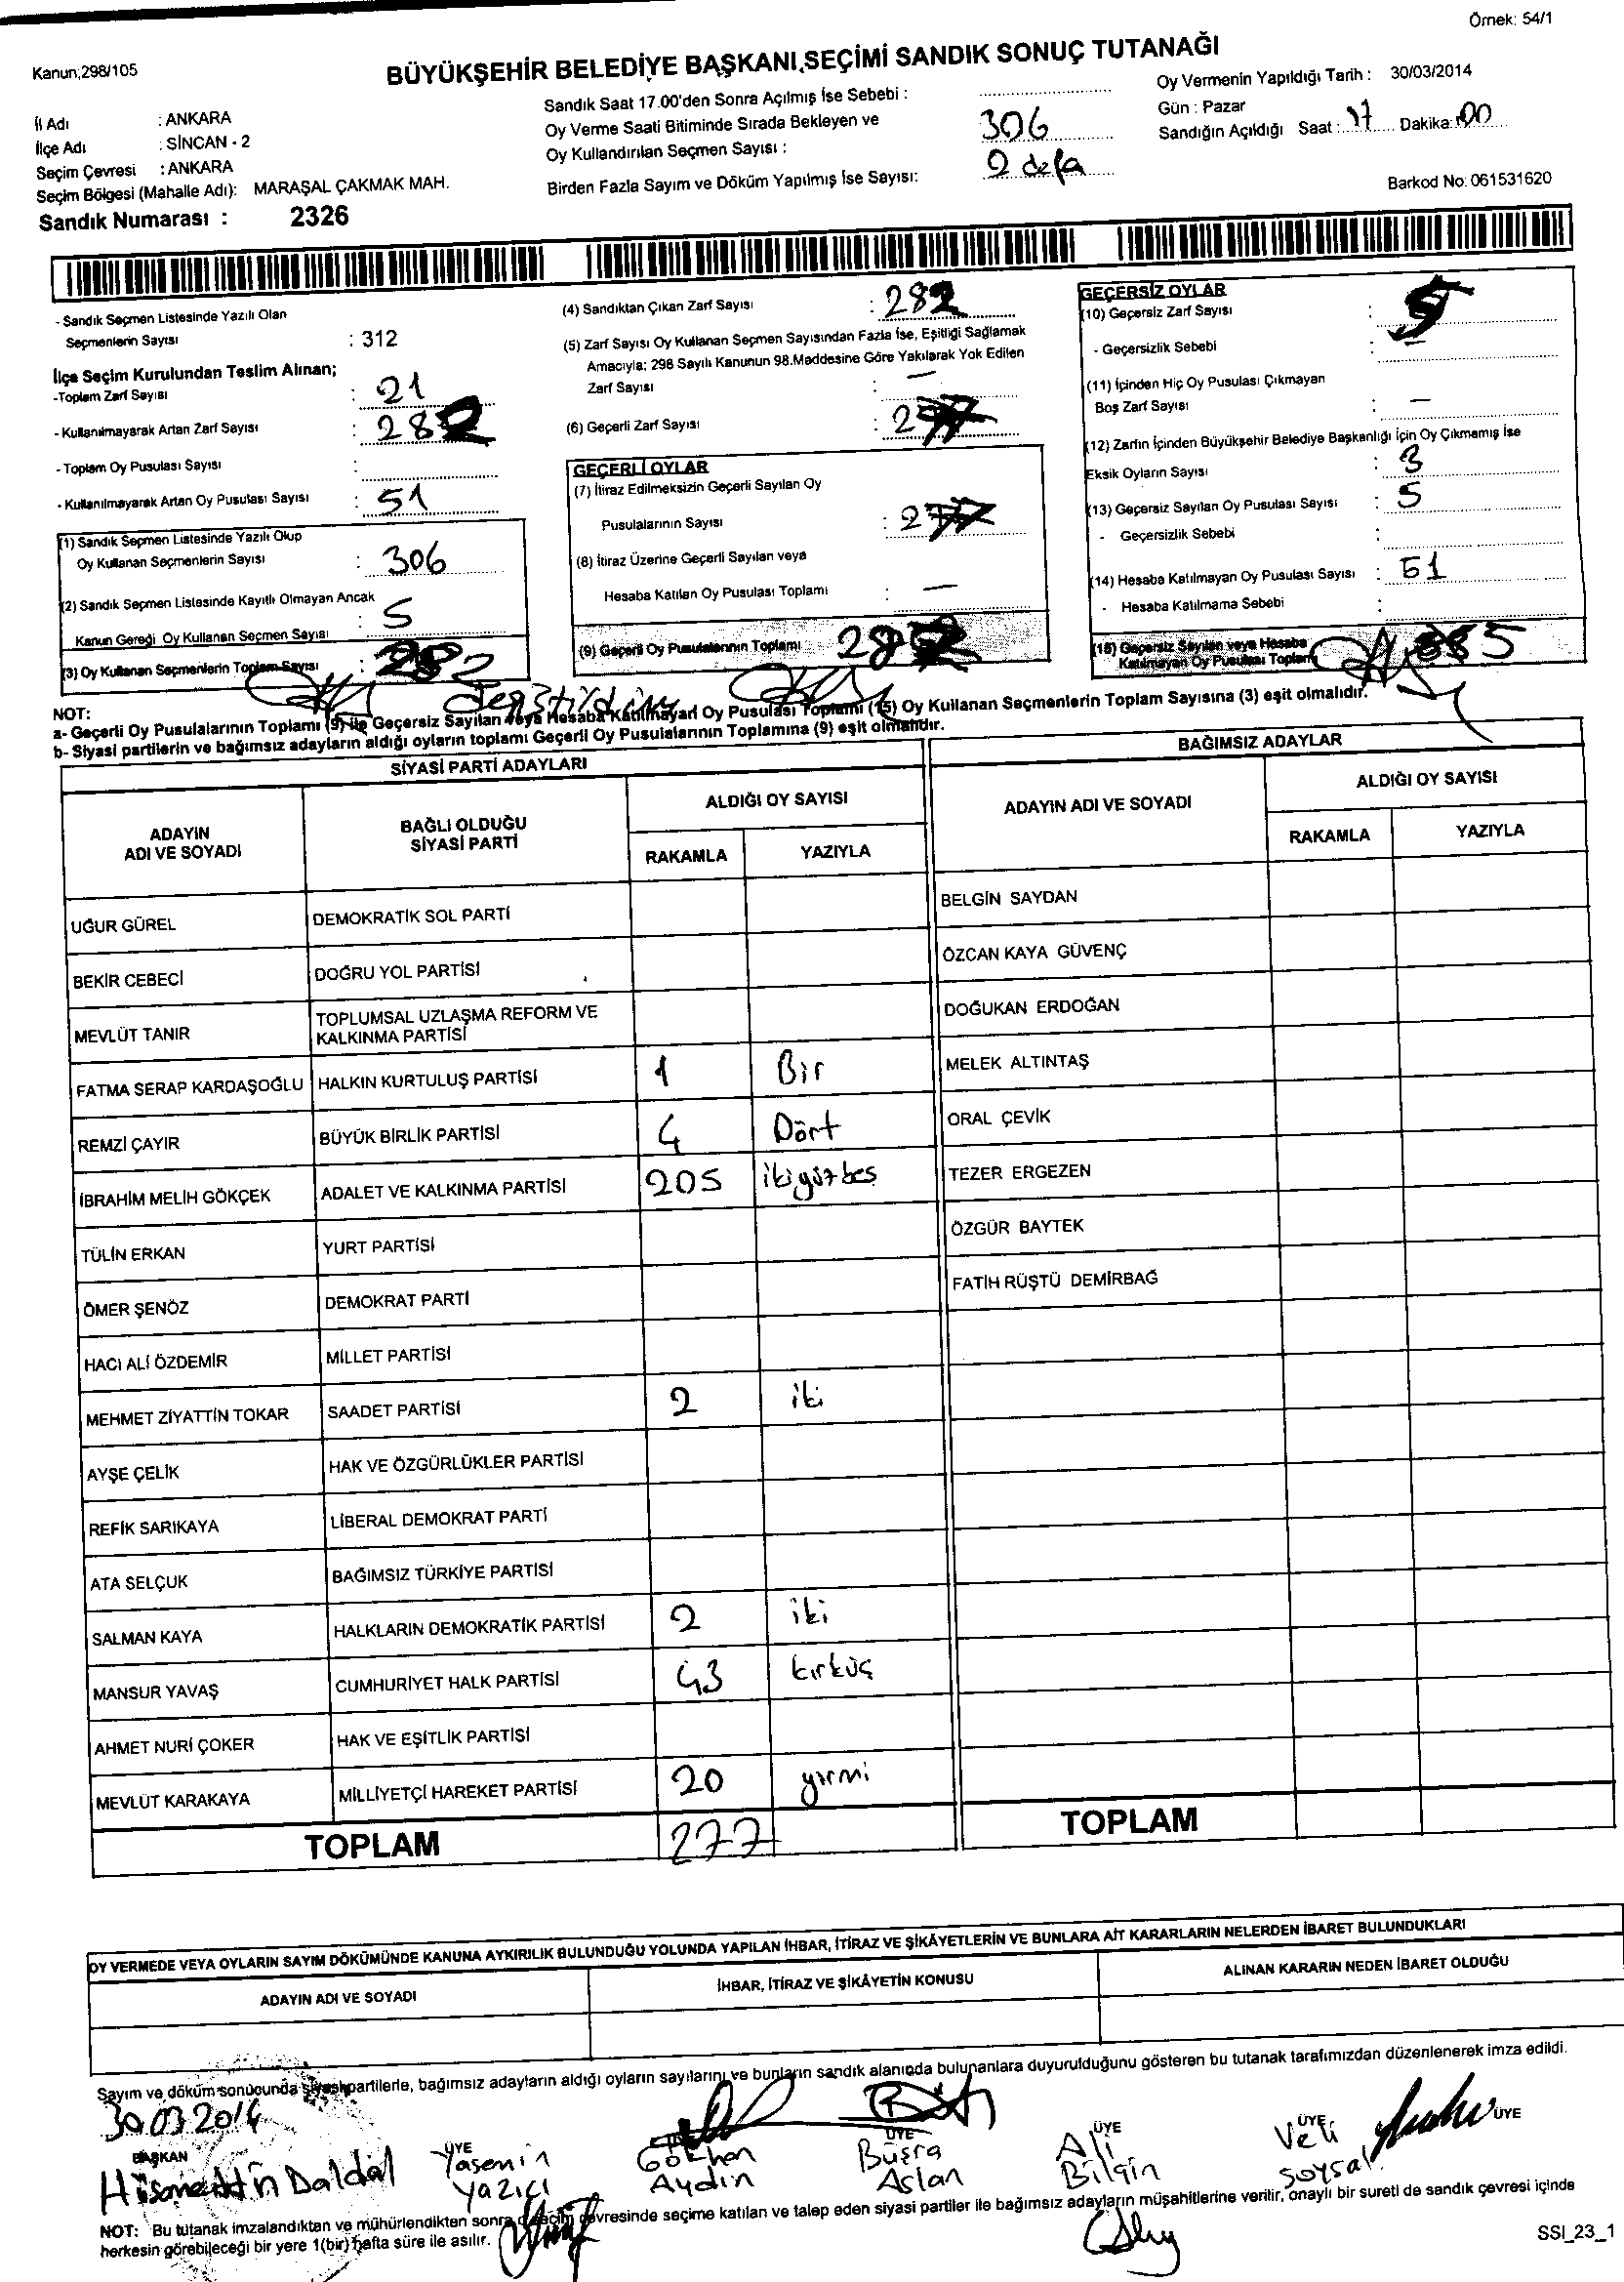 Örnek: 54/1
Kanun;298/105
BÜYÜKŞEHİR BELEDİYE BAŞKANI SEÇİMİ SANDIK SONUÇ TUTANAĞI
İl Adı : ANKARA
İlçe Adı : SİNCAN - 2
Seçim Çevresi : ANKARA
Seçim Bölgesi (Mahalle Adı): MARAŞAL ÇAKMAK MAH.
Sandık Numarası : 2326
Sandık Saat 17.00'den Sonra Açılmış İse Sebebi :
Oy Verme Saati Bitiminde Sırada Bekleyen ve
Oy Kullandırılan Seçmen Sayısı : 306
Birden Fazla Sayım ve Döküm Yapılmış İse Sayısı: 2 defa
Oy Vermenin Yapıldığı Tarih : 30/03/2014
Gün : Pazar
Sandığın Açıldığı Saat : 17 Dakika: 00
Barkod No: 061531620
- Sandık Seçmen Listesinde Yazılı Olan
Seçmenlerin Sayısı : 312
İlçe Seçim Kurulundan Teslim Alınan;
-Toplam Zarf Sayısı : 21
- Kullanılmayarak Artan Zarf Sayısı : 282
- Toplam Oy Pusulası Sayısı :
- Kullanılmayarak Artan Oy Pusulası Sayısı : 51
(1) Sandık Seçmen Listesinde Yazılı Olup
Oy Kullanan Seçmenlerin Sayısı : 306
(2) Sandık Seçmen Listesinde Kayıtlı Olmayan Ancak
Kanun Gereği Oy Kullanan Seçmen Sayısı : 5
(3) Oy Kullanan Seçmenlerin Toplam Sayısı 282
(4) Sandıktan Çıkan Zarf Sayısı : 282
(5) Zarf Sayısı Oy Kullanan Seçmen Sayısından Fazla İse, Eşitliği Sağlamak
Amacıyla; 298 Sayılı Kanunun 98.Maddesine Göre Yakılarak Yok Edilen
Zarf Sayısı : —
(6) Geçerli Zarf Sayısı : 277
GEÇERLİ OYLAR
(7) İtiraz Edilmeksizin Geçerli Sayılan Oy
Pusulalarının Sayısı : 277
(8) İtiraz Üzerine Geçerli Sayılan veya
Hesaba Katılan Oy Pusulası Toplamı : —
(9) Geçerli Oy Pusulalarının Toplamı
GEÇERSİZ OYLAR
(10) Geçersiz Zarf Sayısı : 5
- Geçersizlik Sebebi : —
(11) İçinden Hiç Oy Pusulası Çıkmayan
Boş Zarf Sayısı : —
(12) Zarfın İçinden Büyükşehir Belediye Başkanlığı İçin Oy Çıkmamış İse
Eksik Oyların Sayısı : 3
(13) Geçersiz Sayılan Oy Pusulası Sayısı : 5
- Geçersizlik Sebebi :
(14) Hesaba Katılmayan Oy Pusulası Sayısı : 51
- Hesaba Katılmama Sebebi :
(15) Geçersiz Sayılan veya Hesaba
Katılmayan Oy Pusulası Toplamı
NOT:
a- Geçerli Oy Pusulalarının Toplamı (9) ile Geçersiz Sayılan veya Hesaba Katılmayan Oy Pusulası Toplamı (15) Oy Kullanan Seçmenlerin Toplam Sayısına (3) eşit olmalıdır.
b- Siyasi partilerin ve bağımsız adayların aldığı oyların toplamı Geçerli Oy Pusulalarının Toplamına (9) eşit olmalıdır.
SİYASİ PARTİ ADAYLARI
ADAYIN ADI VE SOYADI
BAĞLI OLDUĞU SİYASİ PARTİ
ALDIĞI OY SAYISI
RAKAMLA YAZIYLA
UĞUR GÜREL DEMOKRATİK SOL PARTİ
BEKİR CEBECİ DOĞRU YOL PARTİSİ
MEVLÜT TANIR TOPLUMSAL UZLAŞMA REFORM VE KALKINMA PARTİSİ
FATMA SERAP KARDAŞOĞLU HALKIN KURTULUŞ PARTİSİ 1 Bir
REMZİ ÇAYIR BÜYÜK BİRLİK PARTİSİ 4 Dört
İBRAHİM MELİH GÖKÇEK ADALET VE KALKINMA PARTİSİ 205 ikiyüzbeş
TÜLİN ERKAN YURT PARTİSİ
ÖMER ŞENÖZ DEMOKRAT PARTİ
HACI ALİ ÖZDEMİR MİLLET PARTİSİ
MEHMET ZİYATTİN TOKAR SAADET PARTİSİ 2 iki
AYŞE ÇELİK HAK VE ÖZGÜRLÜKLER PARTİSİ
REFİK SARIKAYA LİBERAL DEMOKRAT PARTİ
ATA SELÇUK BAĞIMSIZ TÜRKİYE PARTİSİ
SALMAN KAYA HALKLARIN DEMOKRATİK PARTİSİ 2 iki
MANSUR YAVAŞ CUMHURİYET HALK PARTİSİ 43 kırküç
AHMET NURİ ÇOKER HAK VE EŞİTLİK PARTİSİ
MEVLÜT KARAKAYA MİLLİYETÇİ HAREKET PARTİSİ 20 yirmi
TOPLAM 277
BAĞIMSIZ ADAYLAR
ADAYIN ADI VE SOYADI
ALDIĞI OY SAYISI
RAKAMLA YAZIYLA
BELGİN SAYDAN
ÖZCAN KAYA GÜVENÇ
DOĞUKAN ERDOĞAN
MELEK ALTINTAŞ
ORAL ÇEVİK
TEZER ERGEZEN
ÖZGÜR BAYTEK
FATİH RÜŞTÜ DEMİRBAĞ
TOPLAM
OY VERMEDE VEYA OYLARIN SAYIM DÖKÜMÜNDE KANUNA AYKIRILIK BULUNDUĞU YOLUNDA YAPILAN İHBAR, İTİRAZ VE ŞİKÂYETLERİN VE BUNLARA AİT KARARLARIN NELERDEN İBARET BULUNDUKLARI
ADAYIN ADI VE SOYADI
İHBAR, İTİRAZ VE ŞİKÂYETİN KONUSU
ALINAN KARARIN NEDEN İBARET OLDUĞU
Sayım ve döküm sonucunda siyasi partilerle, bağımsız adayların aldığı oyların sayılarını ve bunların sandık alanında bulunanlara duyurulduğunu gösteren bu tutanak tarafımızdan düzenlenerek imza edildi.
30.03.2014
BAŞKAN ÜYE ÜYE ÜYE ÜYE ÜYE
Hüsmettin Daldal
Yasemin Yazıcı
Gökhan Aydın
Büşra Aslan
Ali Bilgin
Veli Soysal
NOT: Bu tutanak imzalandıktan ve mühürlendikten sonra seçim çevresinde seçime katılan ve talep eden siyasi partiler ile bağımsız adayların müşahitlerine verilir, onaylı bir sureti de sandık çevresi içinde
herkesin görebileceği bir yere 1(bir) hafta süre ile asılır.
SSI_23_1